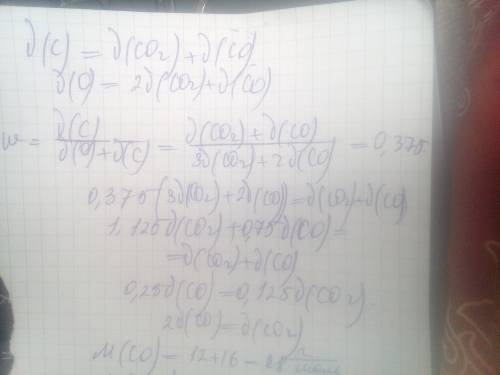 ∂(C) = ∂(CO₂) + ∂(CO)
∂(O) = 2∂(CO₂) + ∂(CO)
w = ∂(C) / (∂(O) + ∂(C)) = (∂(CO₂) + ∂(CO)) / (3∂(CO₂) + 2∂(CO)) = 0,375
0,375(3∂(CO₂) + 2∂(CO)) = ∂(CO₂) + ∂(CO)
1,125∂(CO₂) + 0,75∂(CO) =
= ∂(CO₂) + ∂(CO)
0,25∂(CO) = 0,125∂(CO₂)
2∂(CO) = ∂(CO₂)
M(CO) = 12 + 16 = 28 г/моль